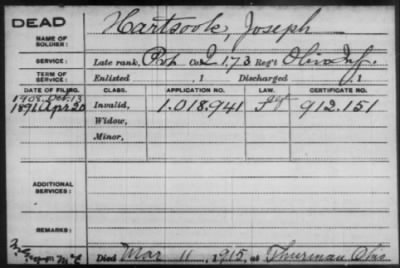 DEAD
NAME OF SOLDIER: Hartsook, Joseph
SERVICE: Late rank, Pvt Co. I 173 Reg't Ohio Inf.
TERM OF SERVICE: Enlisted , 1 Discharged , 1
DATE OF FILING. CLASS. APPLICATION NO. LAW. CERTIFICATE NO.
1908. Oct. 13
1891 Apr 20 Invalid, 1.018.941 912.151
Widow,
Minor,
ADDITIONAL SERVICES:
REMARKS:
Died Mar 11, 1915, at Thurman Ohio